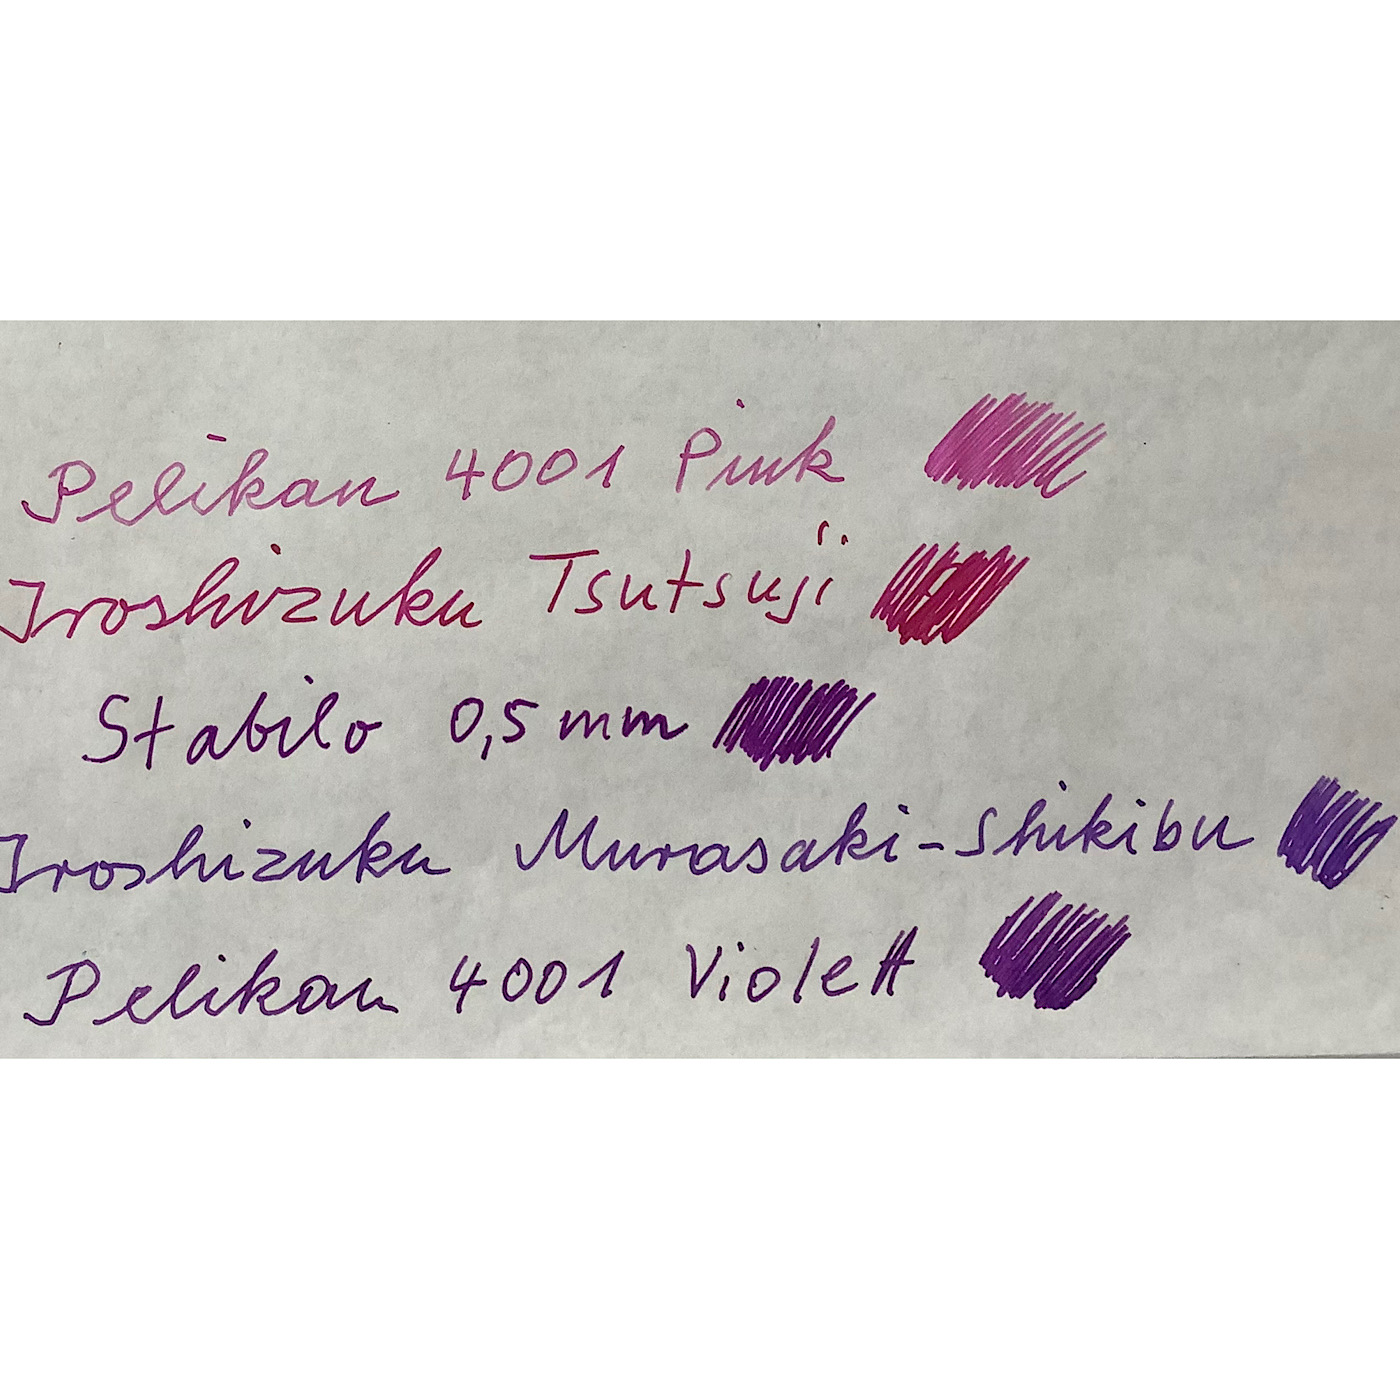 Pelikan 4001 Pink
Iroshizuku Tsutsuji
Stabilo 0,5 mm
Iroshizuku Murasaki-Shikibu
Pelikan 4001 Violett